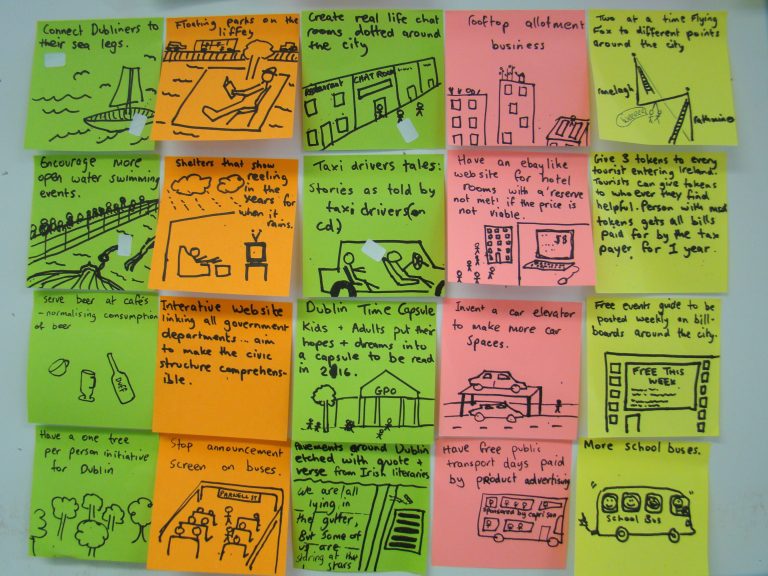 Connect Dubliners to
their sea legs.
Floating parks on the
liffey
Create real life chat
rooms dotted around
the city
Restaurant
CHAT ROOM
rooftop allotment
business
Two at a time Flying
Fox to different points
around the city
ranelagh
rathmines
Encourage more
open water swimming
events.
Shelters that show
reeling
in the
years for
when it
rains.
Taxi drivers tales:
Stories as told by
taxi drivers (on
cd)
Have an ebay like
website for hotel
rooms with a 'reserve
not met' if the price is
not viable.
Give 3 tokens to every
tourist entering Ireland.
Tourists can give tokens
to who ever they find
helpful. Person with most
tokens gets all bills
paid for by the tax
payer for 1 year.
Serve beer at cafés
- normalising consumption
of beer
DUFF
Interative Website
linking all government
departments... aim
to make the civic
structure comprehens-
ible.
Dublin Time Capsule
Kids + Adults put their
hopes + dreams into
a capsule to be read
in 2016.
GPO
Invent a car elevator
to make more car
Spaces.
Free events guide to be
posted weekly on bill-
boards around the city.
FREE THIS
WEEK
Have a one tree
per person initiative
for Dublin
Stop announcement
screen on buses.
PARNELL ST
Pavements around Dublin
etched with quote +
verse from Irish literaries
We are all
lying in
the gutter,
But some of
us are
staring at the
stars
Have free public
transport days paid
by product advertising
Sponsored by capri son
More school buses.
School Bus